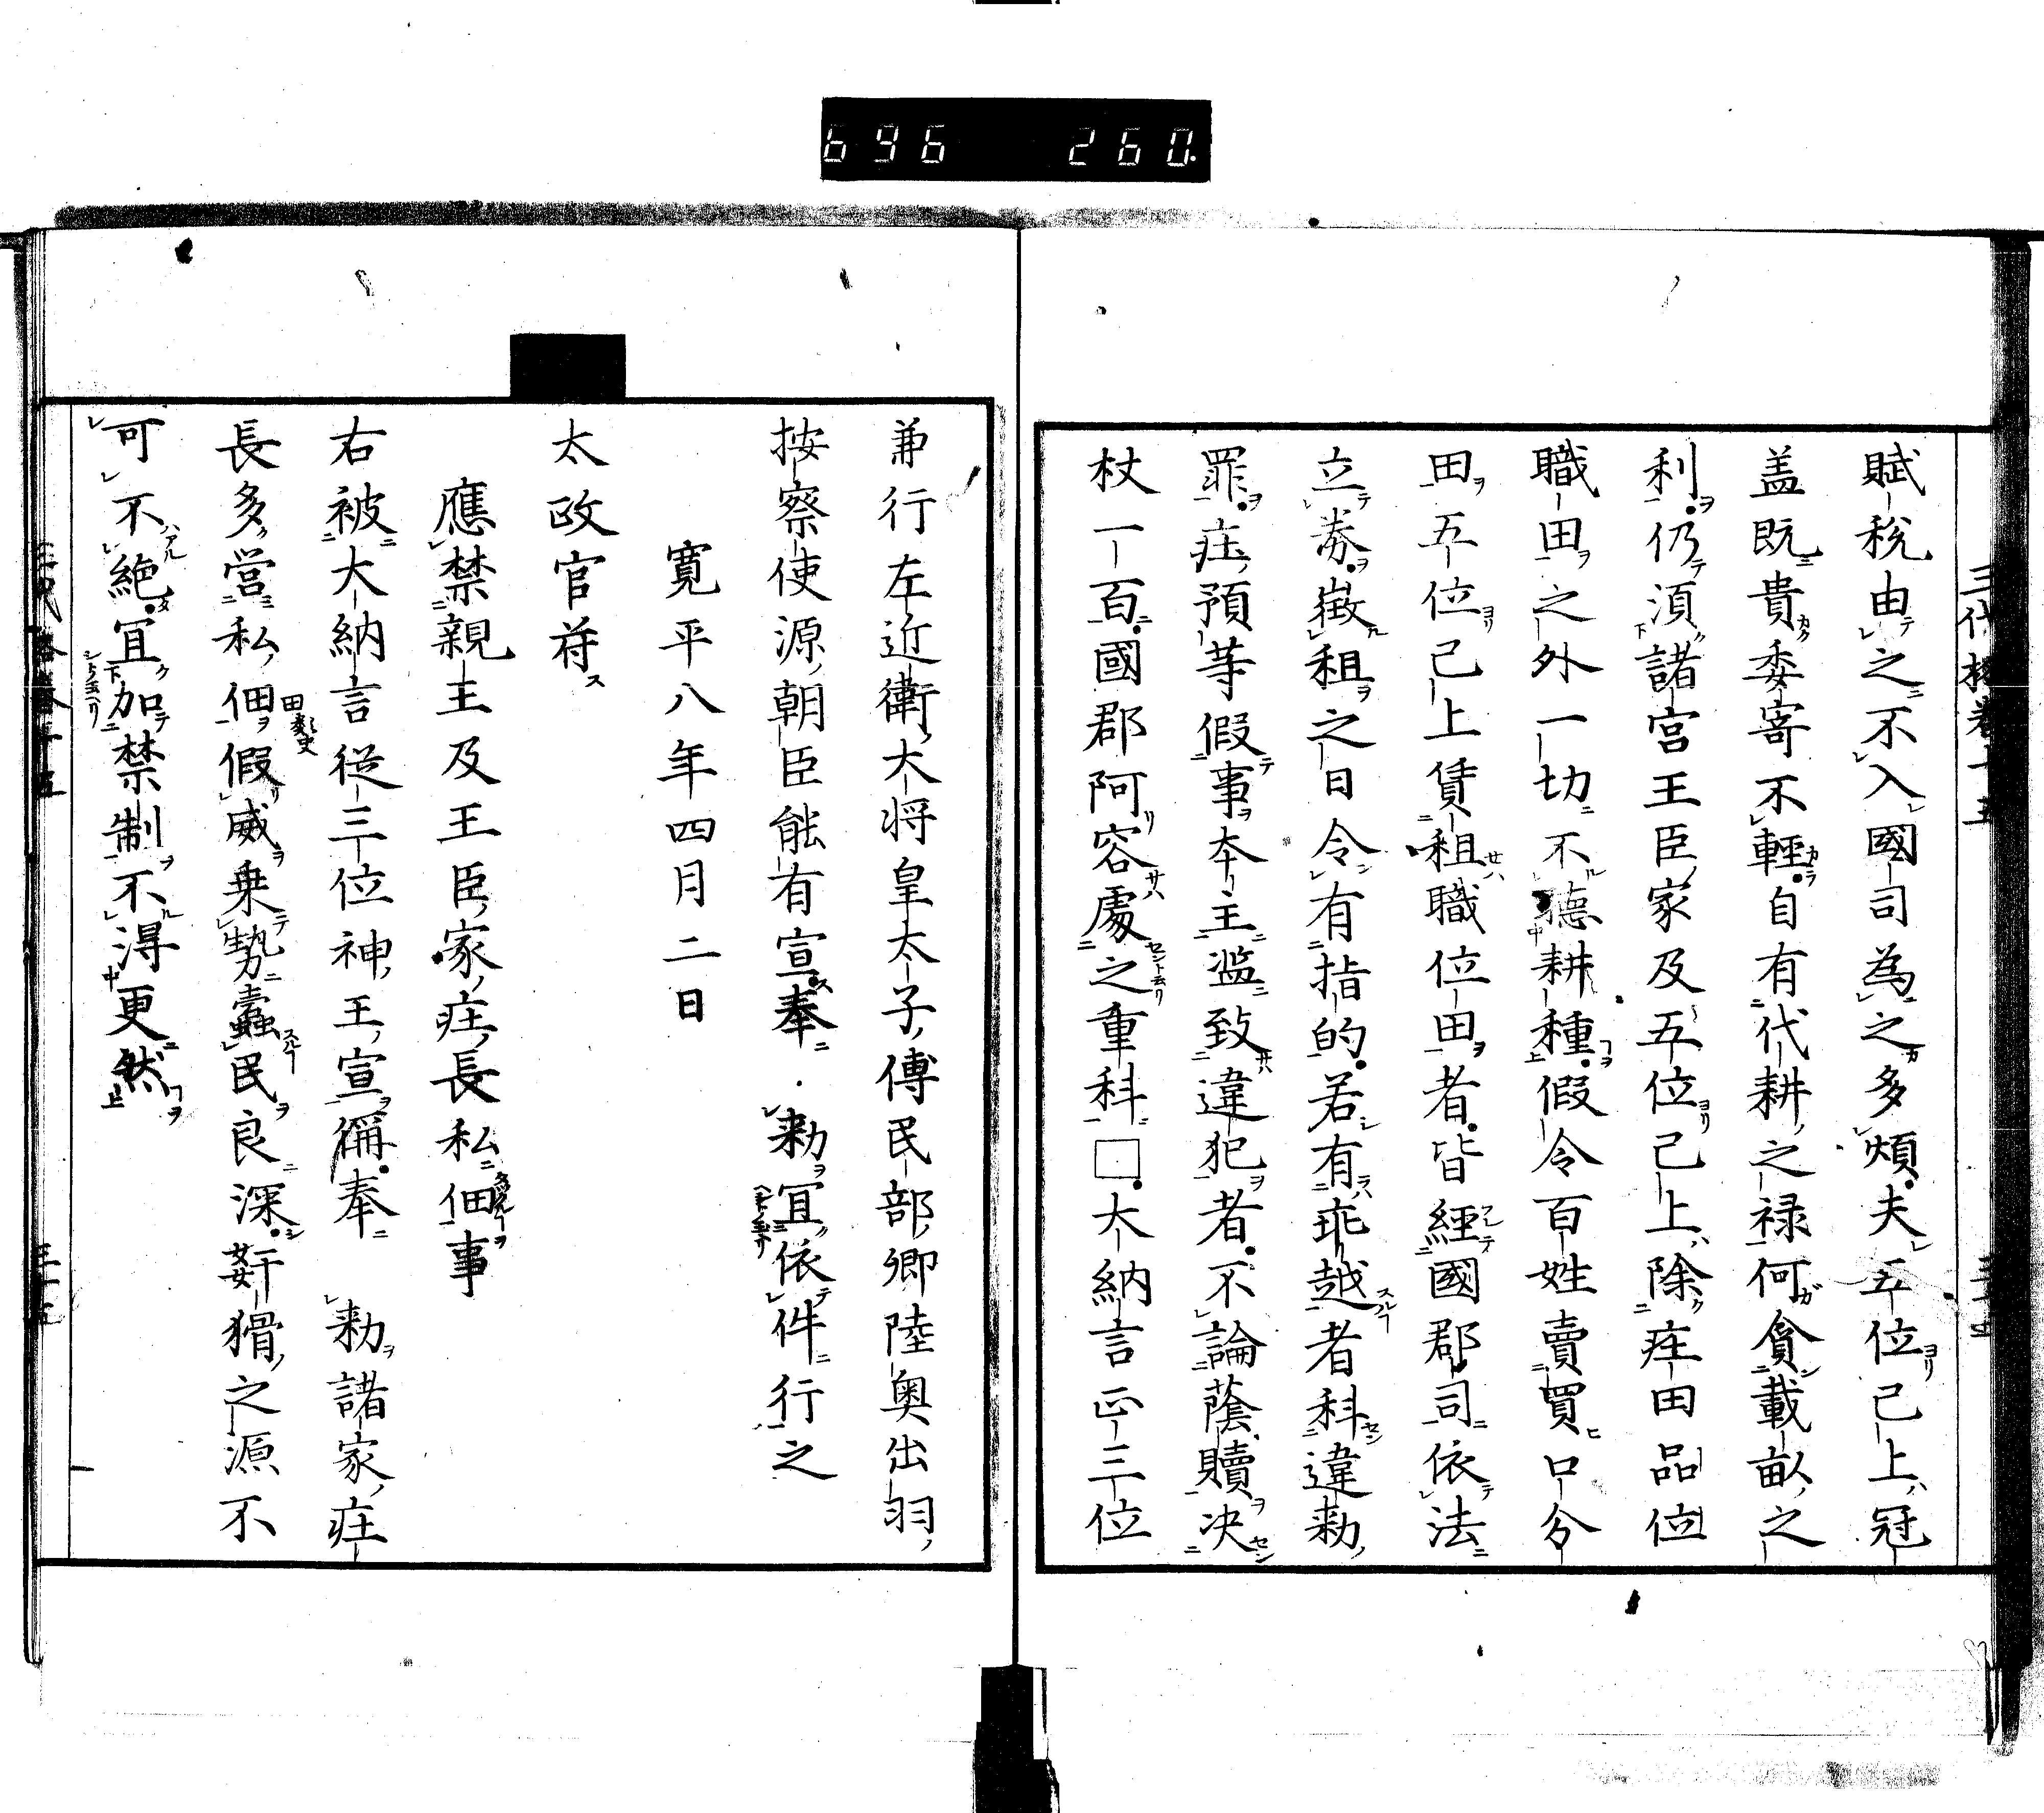 696 260
三代格卷十五
賦稅由之不入國司為之多煩夫五位已上冠
盖既貴委寄不輕自有代耕之禄何貪載畝之
利仍湏諸宮王臣家及五位已上除庄田品位
職田之外一切不聴耕種假令百姓賣買口分
田五位已上賃租職位田者皆經國郡司依法
立券徴租之日令有指的若有乖越者科違勅
罪庄預等假事本主濫致違犯者不論蔭贖决
杖一百國郡阿容處之重科□大納言正三位
兼行左近衛大将皇太子傅民部卿陸奥出羽
按察使源朝臣能有宣奉 勅宜依件行之
寛平八年四月二日
太政官符
應禁親王及王臣家庄長私佃事
右被大納言從三位神王宣偁奉 勅諸家庄
長多営私佃假威乗勢蠹民良深姧猾之源不
可不絶宜加禁制不得更然